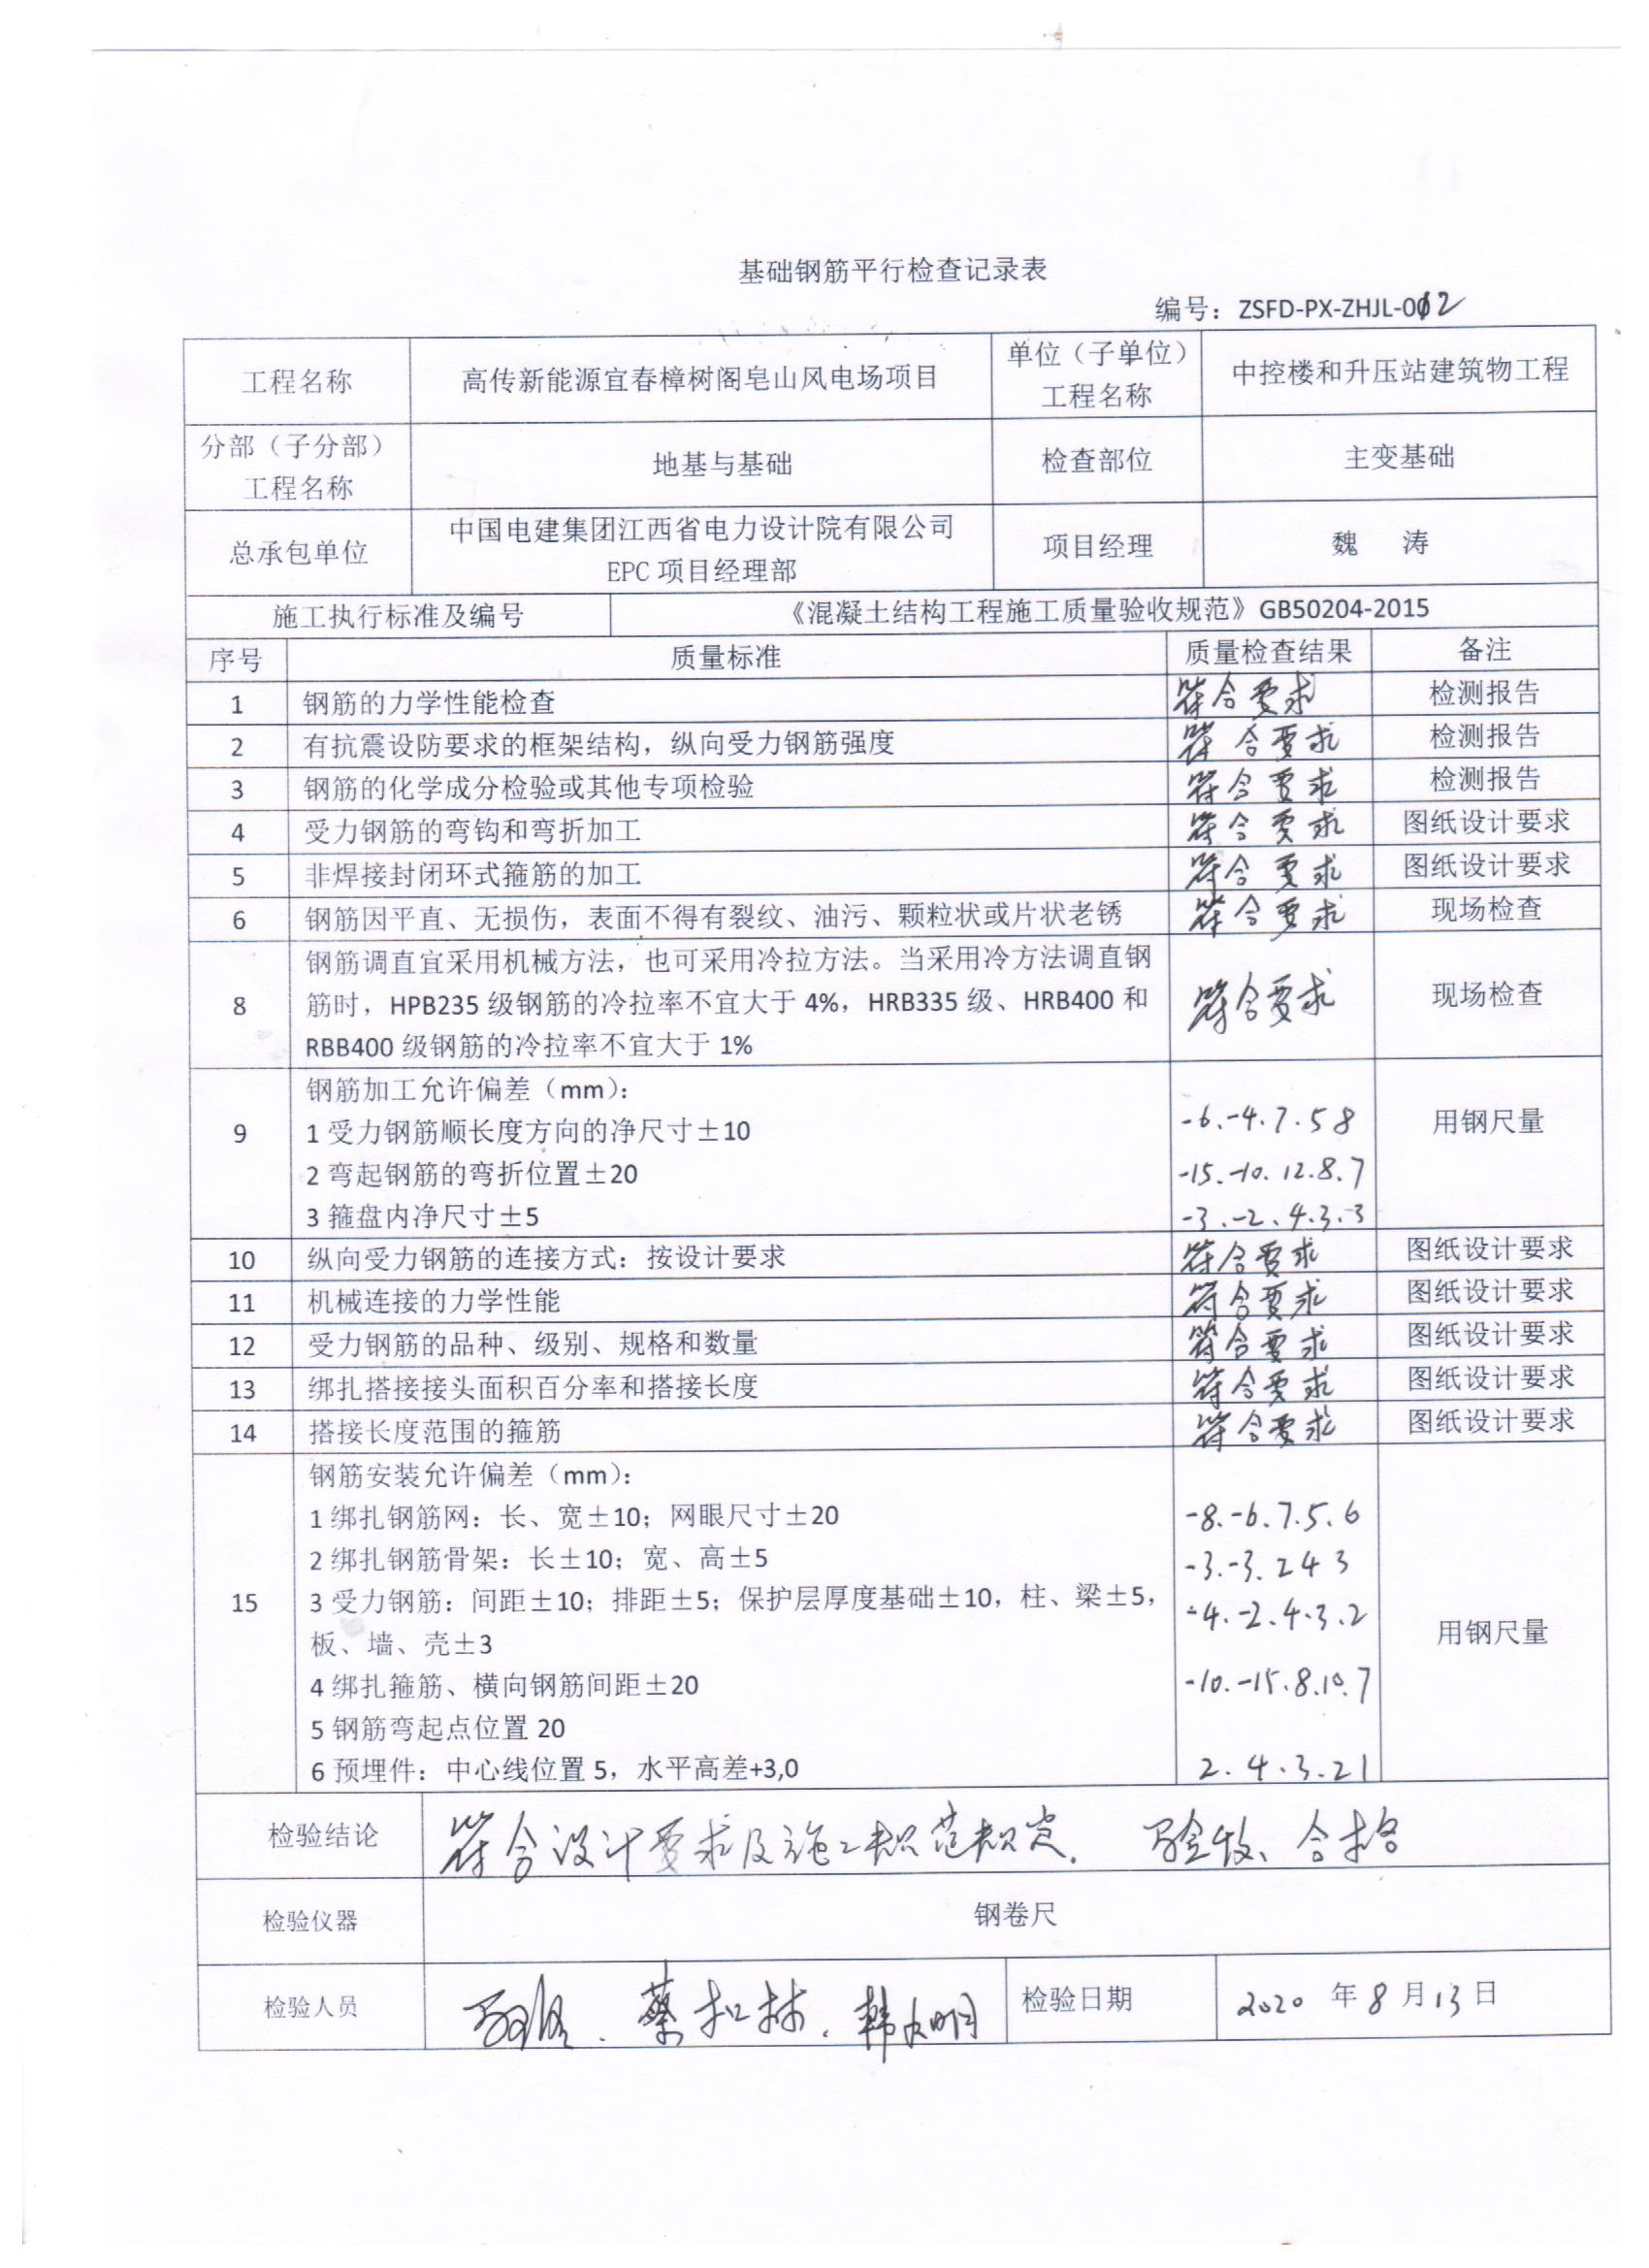 基础钢筋平行检查记录表
编号：ZSFD-PX-ZHJL-012
工程名称 高传新能源宜春樟树阁皂山风电场项目 单位（子单位）工程名称 中控楼和升压站建筑物工程
分部（子分部）工程名称 地基与基础 检查部位 主变基础
总承包单位 中国电建集团江西省电力设计院有限公司 EPC 项目经理部 项目经理 魏 涛
施工执行标准及编号 《混凝土结构工程施工质量验收规范》GB50204-2015
序号 质量标准 质量检查结果 备注
1 钢筋的力学性能检查 符合要求 检测报告
2 有抗震设防要求的框架结构，纵向受力钢筋强度 符合要求 检测报告
3 钢筋的化学成分检验或其他专项检验 符合要求 检测报告
4 受力钢筋的弯钩和弯折加工 符合要求 图纸设计要求
5 非焊接封闭环式箍筋的加工 符合要求 图纸设计要求
6 钢筋因平直、无损伤，表面不得有裂纹、油污、颗粒状或片状老锈 符合要求 现场检查
钢筋调直宜采用机械方法，也可采用冷拉方法。当采用冷方法调直钢
8 筋时，HPB235 级钢筋的冷拉率不宜大于 4%，HRB335 级、HRB400 和 符合要求 现场检查
RBB400 级钢筋的冷拉率不宜大于 1%
钢筋加工允许偏差（mm）：
9 1 受力钢筋顺长度方向的净尺寸±10 -6.-4.7.5 8 用钢尺量
2 弯起钢筋的弯折位置±20 -15.-10.12.8.7
3 箍盘内净尺寸±5 -3.-2.4.3.-3
10 纵向受力钢筋的连接方式：按设计要求 符合要求 图纸设计要求
11 机械连接的力学性能 符合要求 图纸设计要求
12 受力钢筋的品种、级别、规格和数量 符合要求 图纸设计要求
13 绑扎搭接接头面积百分率和搭接长度 符合要求 图纸设计要求
14 搭接长度范围的箍筋 符合要求 图纸设计要求
钢筋安装允许偏差（mm）：
1 绑扎钢筋网：长、宽±10；网眼尺寸±20 -8.-6.7.5.6
2 绑扎钢筋骨架：长±10；宽、高±5 -3.-3.2 4 3
15 3 受力钢筋：间距±10；排距±5；保护层厚度基础±10，柱、梁±5， -4.-2.4.3.2 用钢尺量
板、墙、壳±3
4 绑扎箍筋、横向钢筋间距±20 -10.-15.8.10.7
5 钢筋弯起点位置 20
6 预埋件：中心线位置 5，水平高差+3,0 2.4.3.2 1
检验结论 符合设计要求及施工规范规定. 验收、合格
检验仪器 钢卷尺
检验人员 蔡扣林. 检验日期 2020 年 8 月 13 日